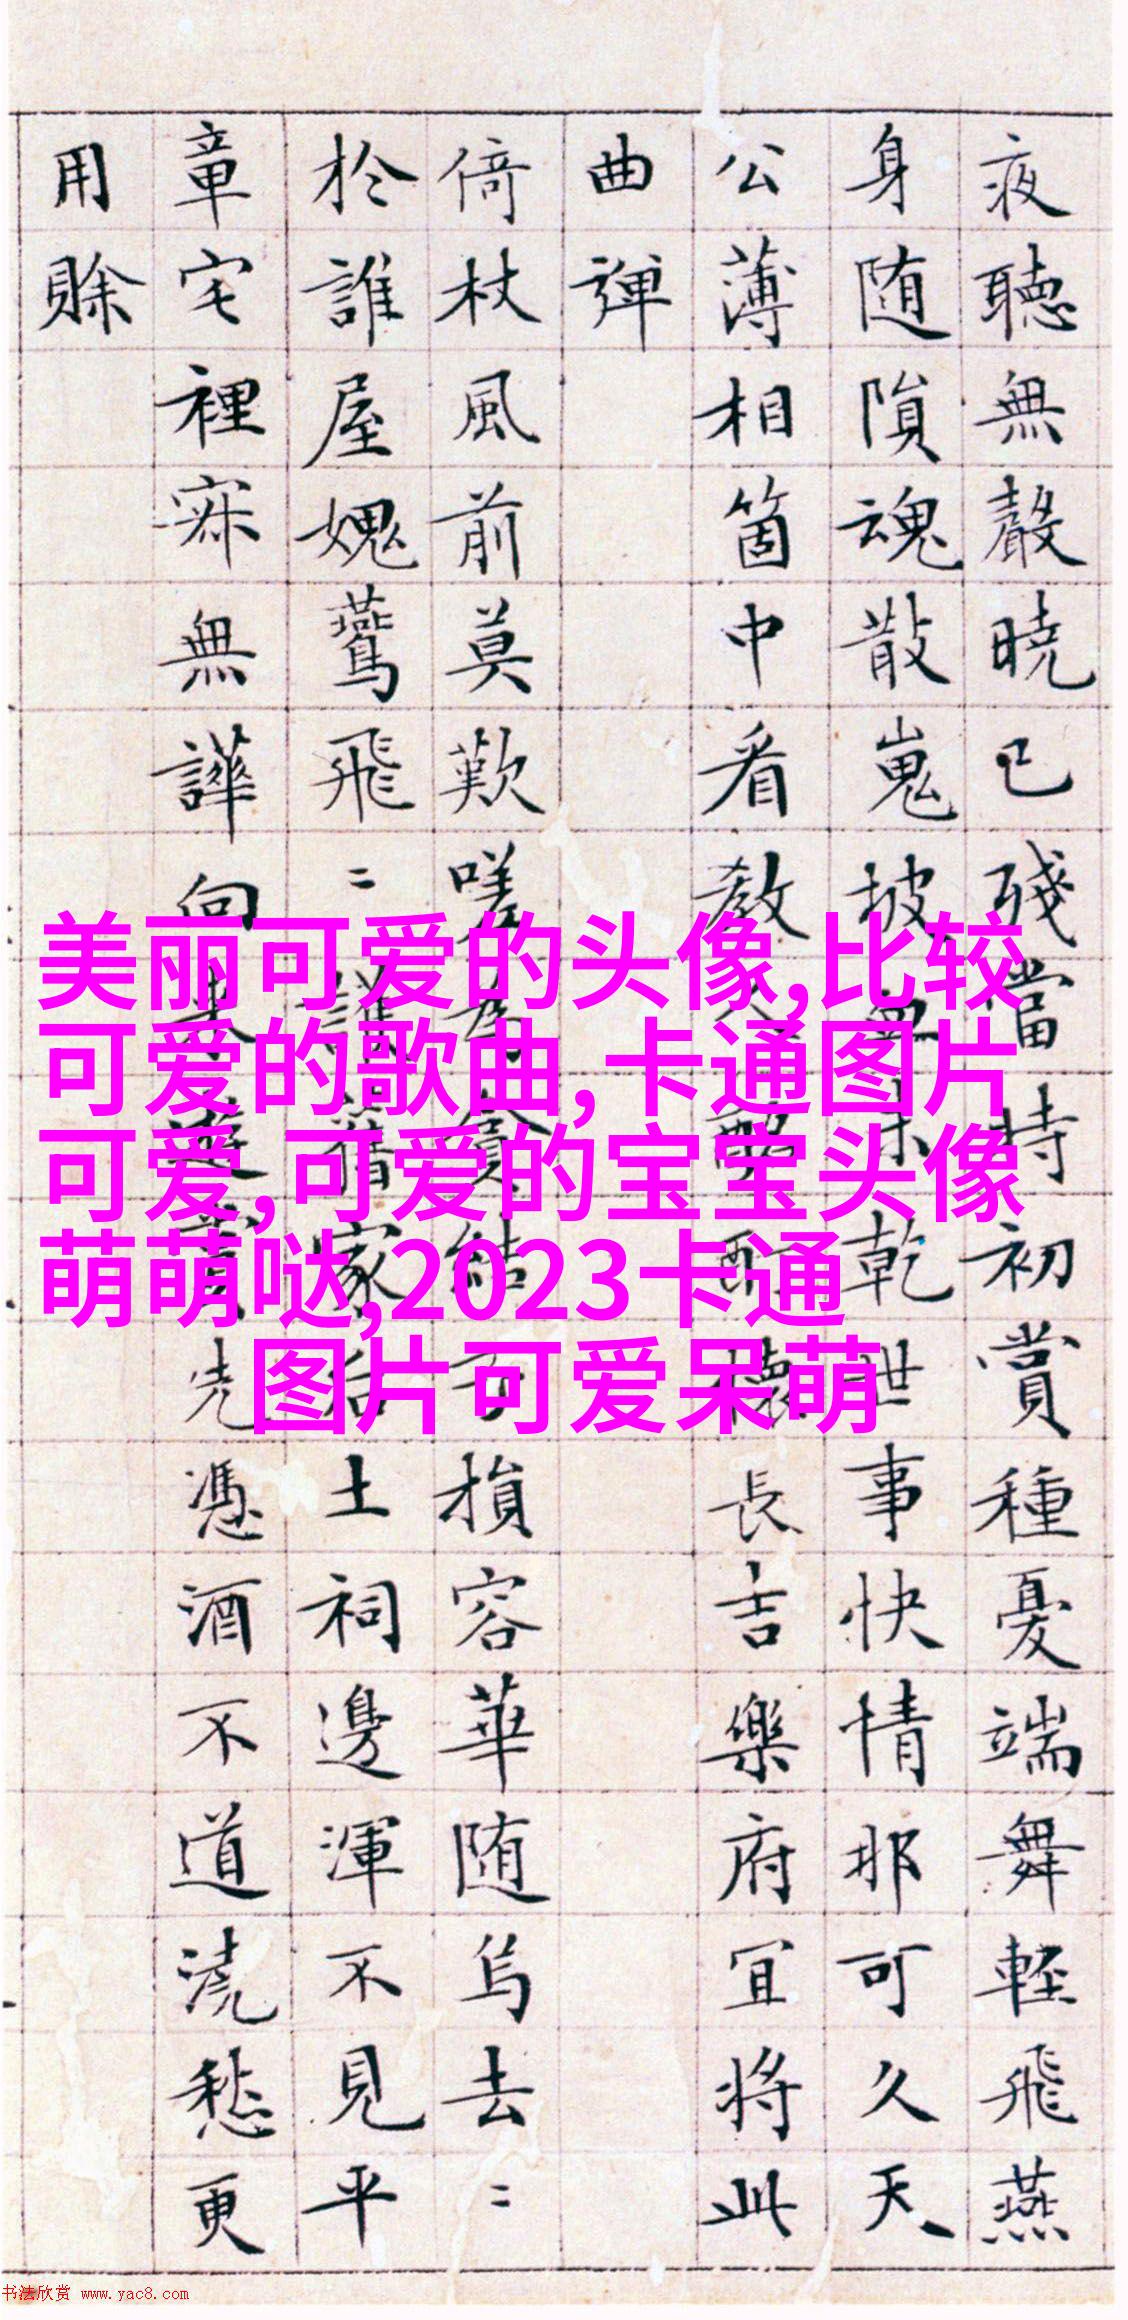 夜聽無聲曉已殘當持初賞種憂端舞輕飛燕
身随隕魂散嵬坡無未乾世事快情那可久天
公薄相箇中看教人酩酊懷長吉樂府宜將此
曲彈
倚杖風前莫歎嗟為貪結子損容華随烏去〻
於誰屋媿鷰飛〻護舊家后土祠邊渾不見平
章宅裡寂無譁向先憑酒不道澆愁更
用賒
美丽可爱的头像,比较
可爱的歌曲,卡通图片
可爱,可爱的宝宝头像
萌萌哒,2023卡通
图片可爱呆萌
书法欣赏 www.yac8.com